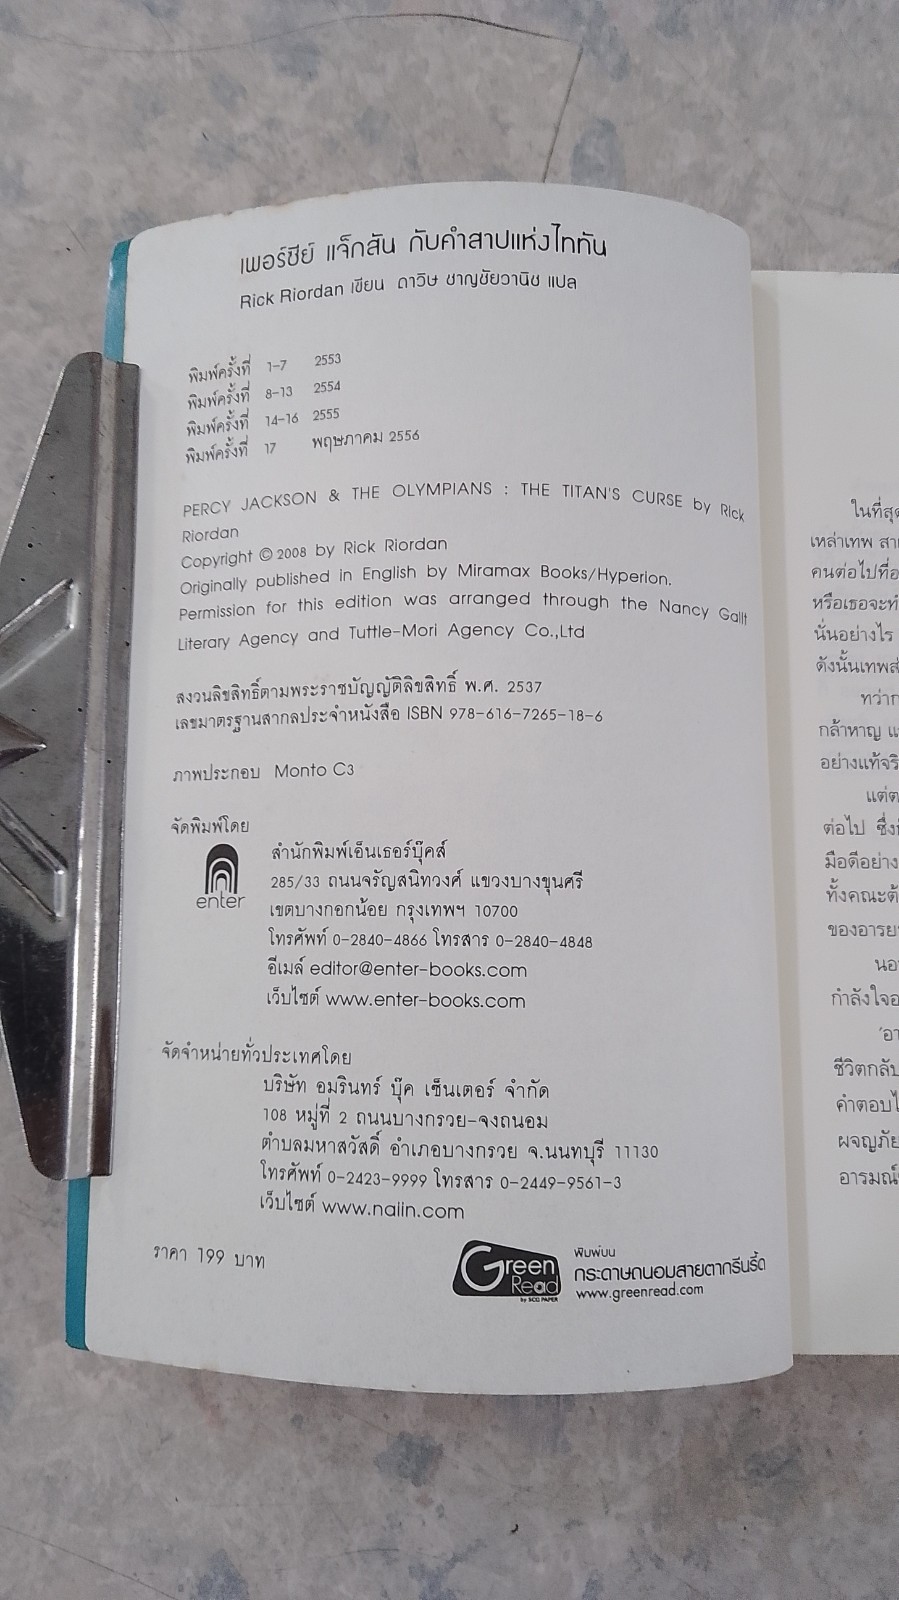 เพอร์ซีย์ แจ็กสัน กับคำสาปแห่งไททัน
Rick Riordan เขียน ดาวิษ ชาญชัยวานิช แปล
พิมพ์ครั้งที่ 1-7 2553
พิมพ์ครั้งที่ 8-13 2554
พิมพ์ครั้งที่ 14-16 2555
พิมพ์ครั้งที่ 17 พฤษภาคม 2556
PERCY JACKSON & THE OLYMPIANS : THE TITAN'S CURSE by Rick
Riordan
Copyright © 2008 by Rick Riordan
Originally published in English by Miramax Books/Hyperion.
Permission for this edition was arranged through the Nancy Gallt
Literary Agency and Tuttle-Mori Agency Co.,Ltd
สงวนลิขสิทธิ์ตามพระราชบัญญัติลิขสิทธิ์ พ.ศ. 2537
เลขมาตรฐานสากลประจำหนังสือ ISBN 978-616-7265-18-6
ภาพประกอบ Monto C3
จัดพิมพ์โดย
enter
สำนักพิมพ์เอ็นเธอร์บุ๊คส์
285/33 ถนนจรัญสนิทวงศ์ แขวงบางขุนศรี
เขตบางกอกน้อย กรุงเทพฯ 10700
โทรศัพท์ 0-2840-4866 โทรสาร 0-2840-4848
อีเมล์ editor@enter-books.com
เว็บไซต์ www.enter-books.com
จัดจำหน่ายทั่วประเทศโดย
บริษัท อมรินทร์ บุ๊ค เซ็นเตอร์ จำกัด
108 หมู่ที่ 2 ถนนบางกรวย-จงถนอม
ตำบลมหาสวัสดิ์ อำเภอบางกรวย จ.นนทบุรี 11130
โทรศัพท์ 0-2423-9999 โทรสาร 0-2449-9561-3
เว็บไซต์ www.naiin.com
ราคา 199 บาท
Green Read
by SCG PAPER
พิมพ์บน
กระดาษถนอมสายตากรีนรี้ด
www.greenread.com
ในที่สุด
เหล่าเทพ
คนต่อไปที่
หรือเธอจะ
นั่นอย่างไร
ดังนั้นเทพ
ทว่า
กล้าหาญ
อย่างแท้จริ
แต่
ต่อไป ซึ่ง
มือดีอย่าง
ทั้งคณะ
ของ
กำลังใจ
ชีวิตกลับ
คำตอบ
ผจญภัย
อารมณ์